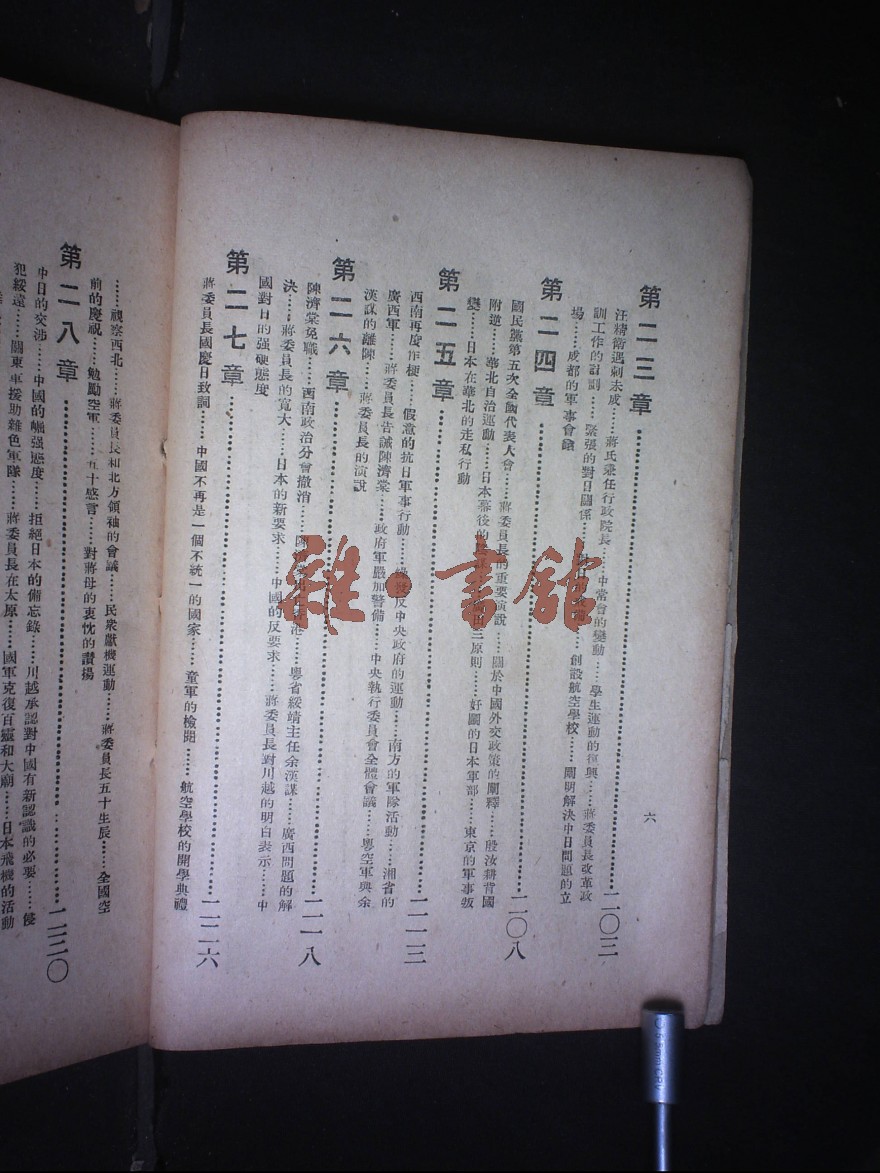 六
第二三章……二〇三
汪精衛遇刺未成……蔣氏兼任行政院長……中常會的變動……學生運動的復興……蔣委員長改革政
訓工作的計劃……緊張的對日關係……創設航空學校……闡明解決中日問題的立
場……成都的軍事會議
第二四章……二〇八
國民黨第五次全國代表大會……蔣委員長的重要演說……關於中國外交政策的闡釋……殷汝耕背國
附逆……華北自治運動……日本幕後的……三原則……好鬭的日本軍部……東京的軍事叛
變……日本在華北的走私行動
第二五章……二一三
西南再度作梗……假意的抗日軍事行動……反中央政府的運動……南方的軍隊活動……湘省的
廣西軍……蔣委員長告誡陳濟棠……政府軍嚴加警備……中央執行委員會全體會議……粵空軍與余
漢謀的離陳……蔣委員長的演說
第二六章……二一八
陳濟棠免職……西南政治分會撤消……粵省綏靖主任余漢謀……廣西問題的解
決……蔣委員長的寬大……日本的新要求……中國的反要求……蔣委員長對川越的明白表示……中
國對日的强硬態度
第二七章……二二六
蔣委員長國慶日致詞……中國不再是一個不統一的國家……童軍的檢閱……航空學校的開學典禮
……視察西北……蔣委員長和北方領袖的會議……民衆獻機運動……蔣委員長五十生辰……全國空
前的慶祝……勉勵空軍……五十感言……對蔣母的衷忱的讚揚
第二八章……二三〇
中日的交涉……中國的崛强態度……拒絕日本的備忘錄……川越承認對中國有新認識的必要……侵
犯綏遠……關東軍援助雜色軍隊……蔣委員長在太原……國軍克復百靈和大廟……日本飛機的活動
雜·書館